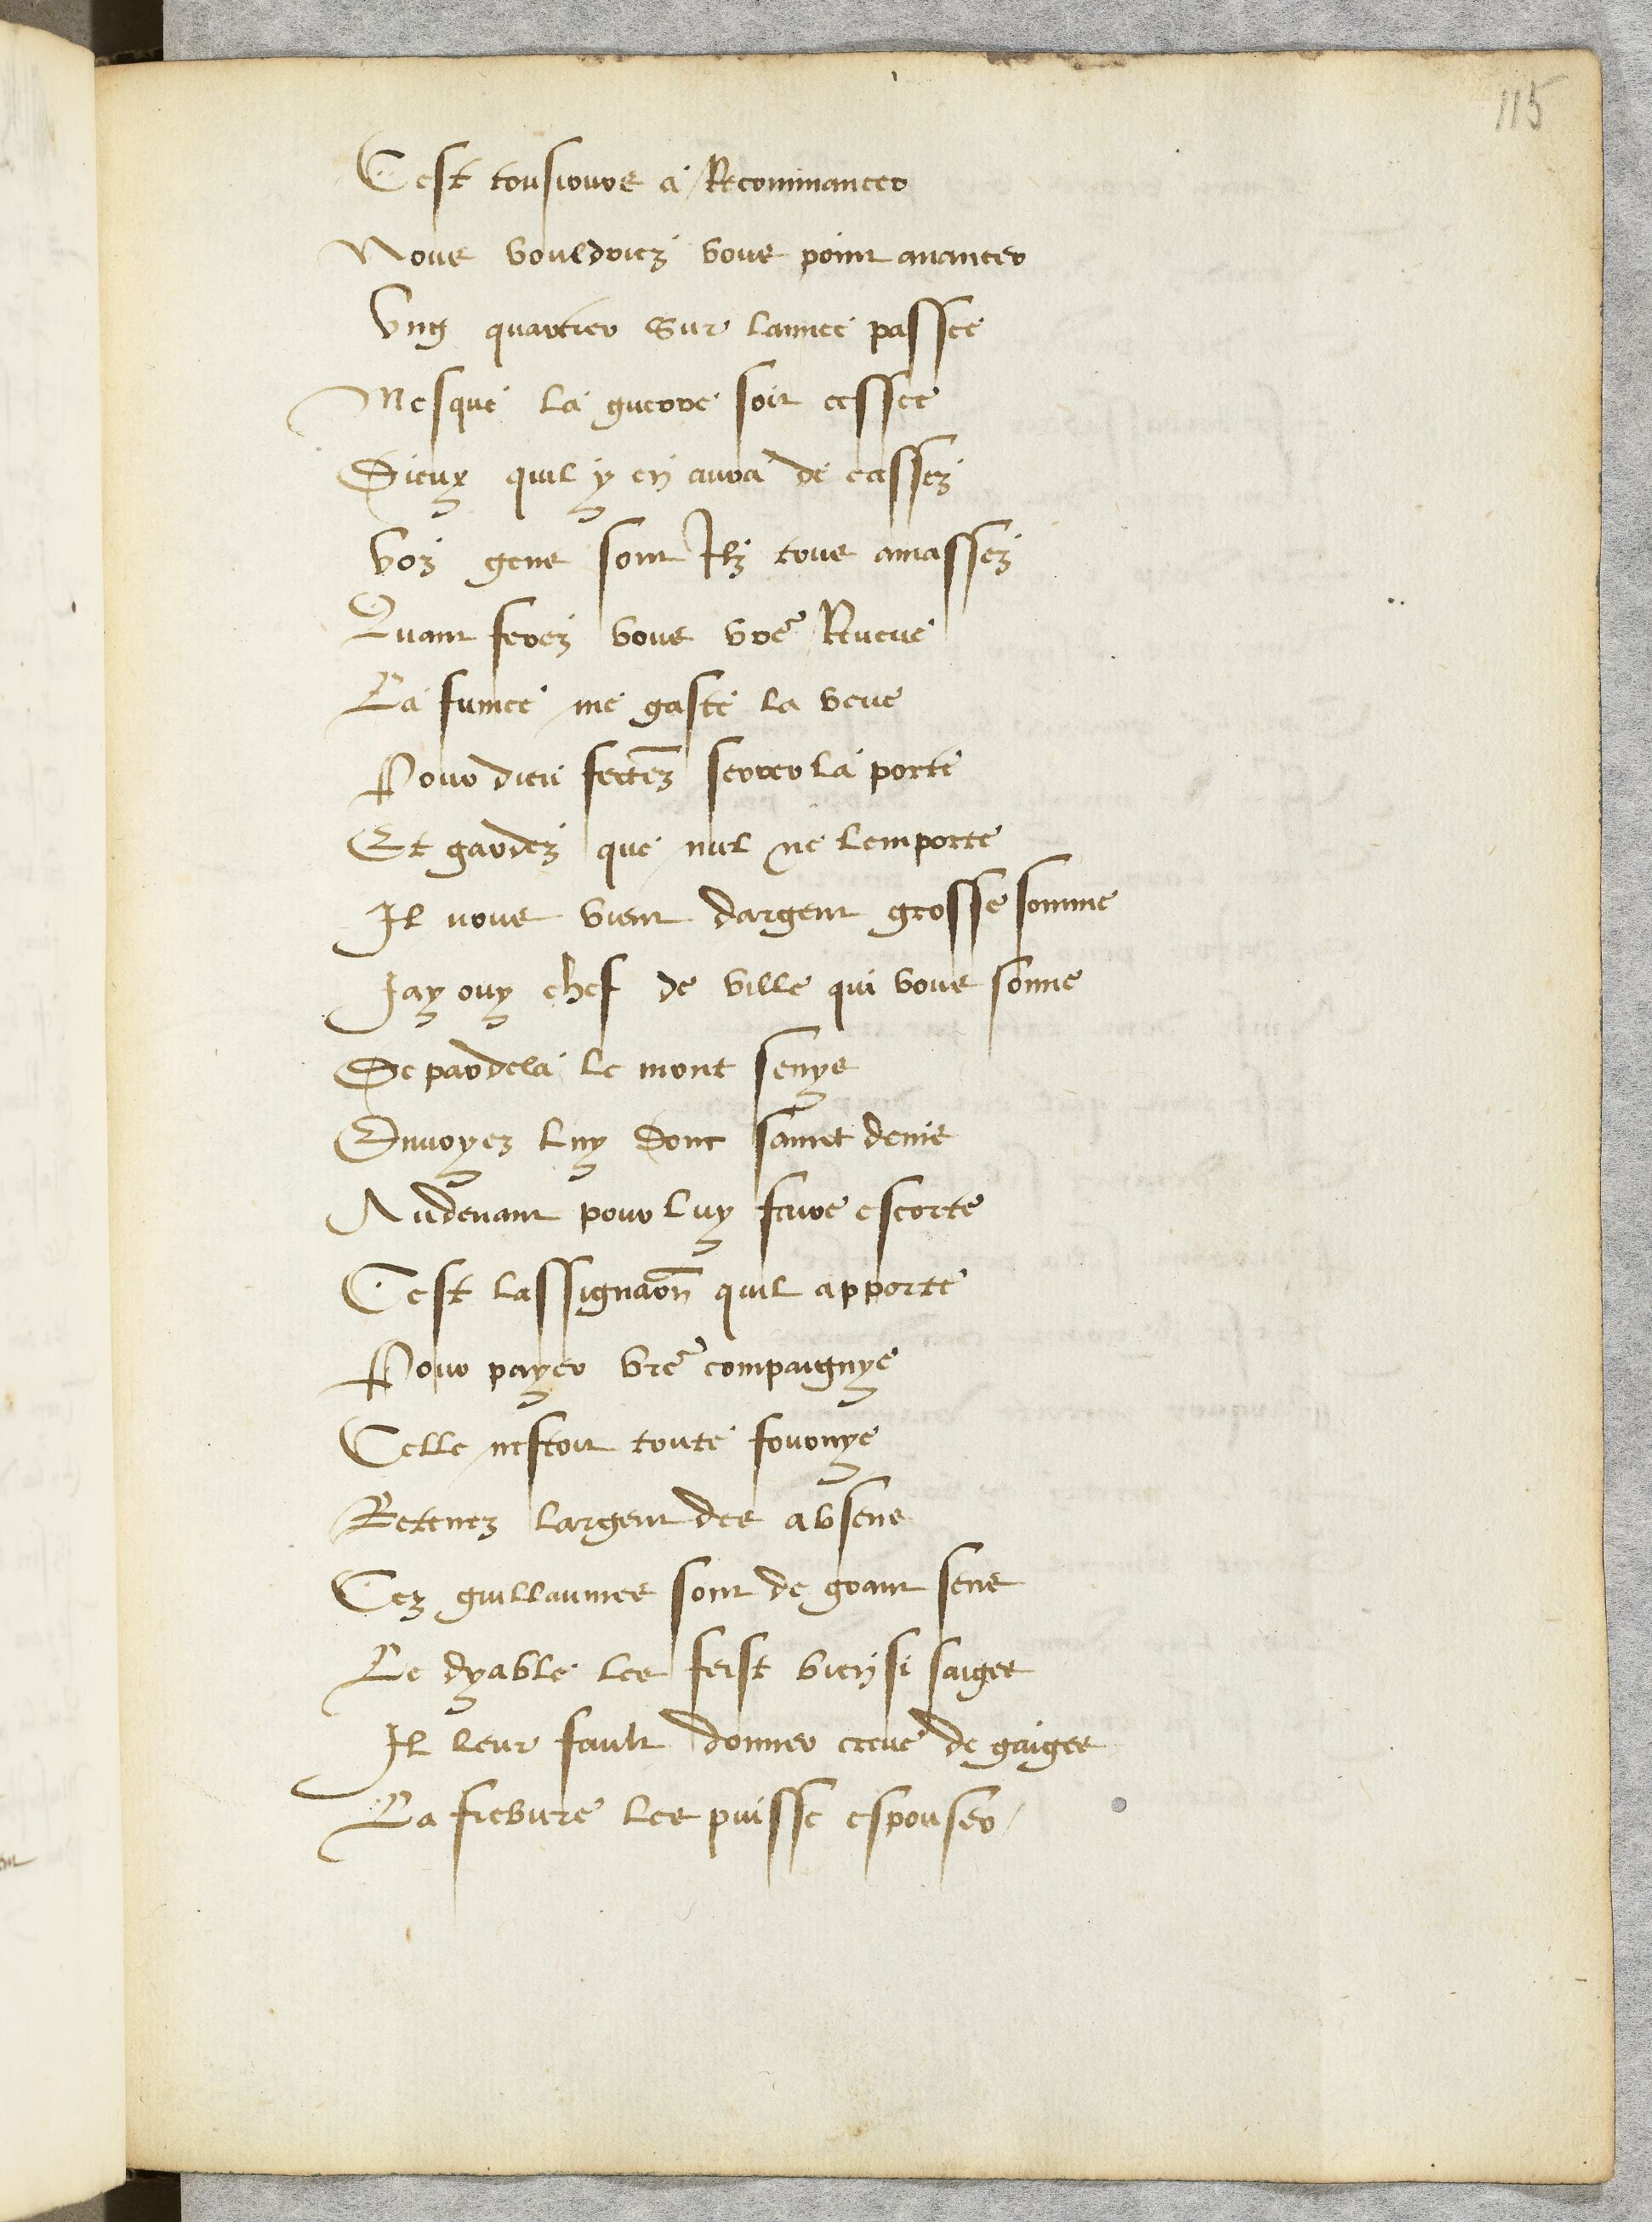 115
Cest tousiours a Recommancer
Nous vouldriez vous point auancer
Vng quartier sur lannee passee
Mesque la guerre soit cessee
Dieux quil y en aura de cassez
Voz gens sont Ilz tous amassez
Quant ferez vous vre Reveue
La fumee me gaste la veue
Pour dieu faictes serrer la porte
Et gardez que nul ne lemporte
Il nous vient dargent grosse somme
Jay ouy chef de ville qui vous sonne
De pardela le mont senys
Enuoyez luy donc sainct denis
Audeuant pour luy faire escorte
Cest lassignaon quil apporte
Pour payer vre compaignye
Celle nestoit toute fournye
Retenez largent des absens
Cez guillaumes sont de grant sens
Le dyable les feist bien si saiges
Il leur fault donner creue de gaiges
La fiebure les puisse espouser